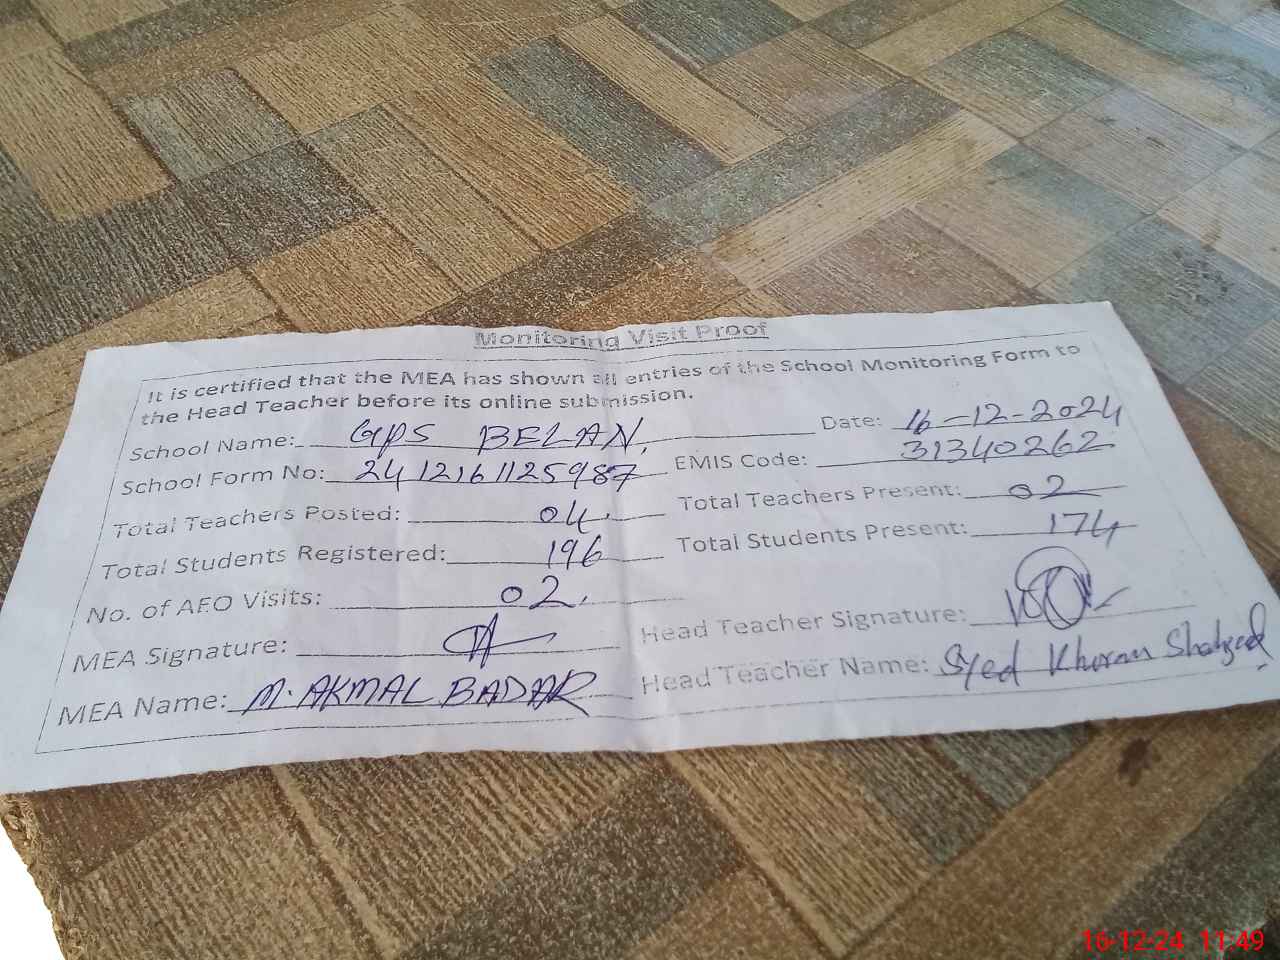 Monitoring Visit Proof
It is certified that the MEA has shown all entries of the School Monitoring Form to
the Head Teacher before its online submission.
School Name: GPS BELAN, Date: 16-12-2024
School Form No: 2412161125987 EMIS Code: 31340262
Total Teachers Posted: 04 Total Teachers Present: 02
Total Students Registered: 196 Total Students Present: 174
No. of AEO Visits: 02
MEA Signature: Head Teacher Signature:
MEA Name: M. AKMAL BADAR Head Teacher Name: Syed Khuram Shahzad
16-12-24 11:49